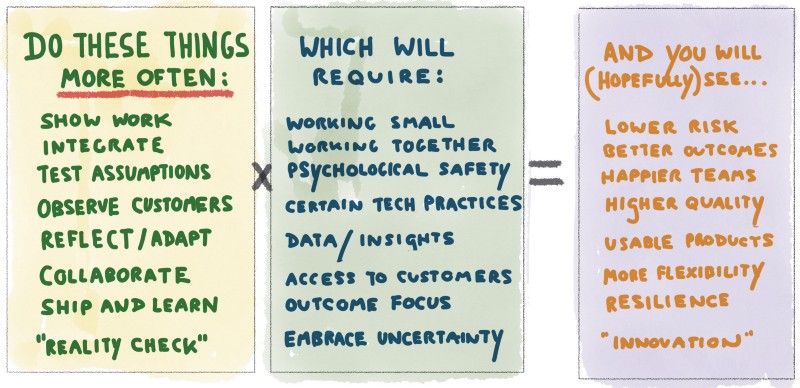 DO THESE THINGS
MORE OFTEN:
SHOW WORK
INTEGRATE
TEST ASSUMPTIONS
OBSERVE CUSTOMERS
REFLECT/ADAPT
COLLABORATE
SHIP AND LEARN
"REALITY CHECK"
x
WHICH WILL
REQUIRE:
WORKING SMALL
WORKING TOGETHER
PSYCHOLOGICAL SAFETY
CERTAIN TECH PRACTICES
DATA/INSIGHTS
ACCESS TO CUSTOMERS
OUTCOME FOCUS
EMBRACE UNCERTAINTY
=
AND YOU WILL
(HOPEFULLY) SEE...
LOWER RISK
BETTER OUTCOMES
HAPPIER TEAMS
HIGHER QUALITY
USABLE PRODUCTS
MORE FLEXIBILITY
RESILIENCE
"INNOVATION"